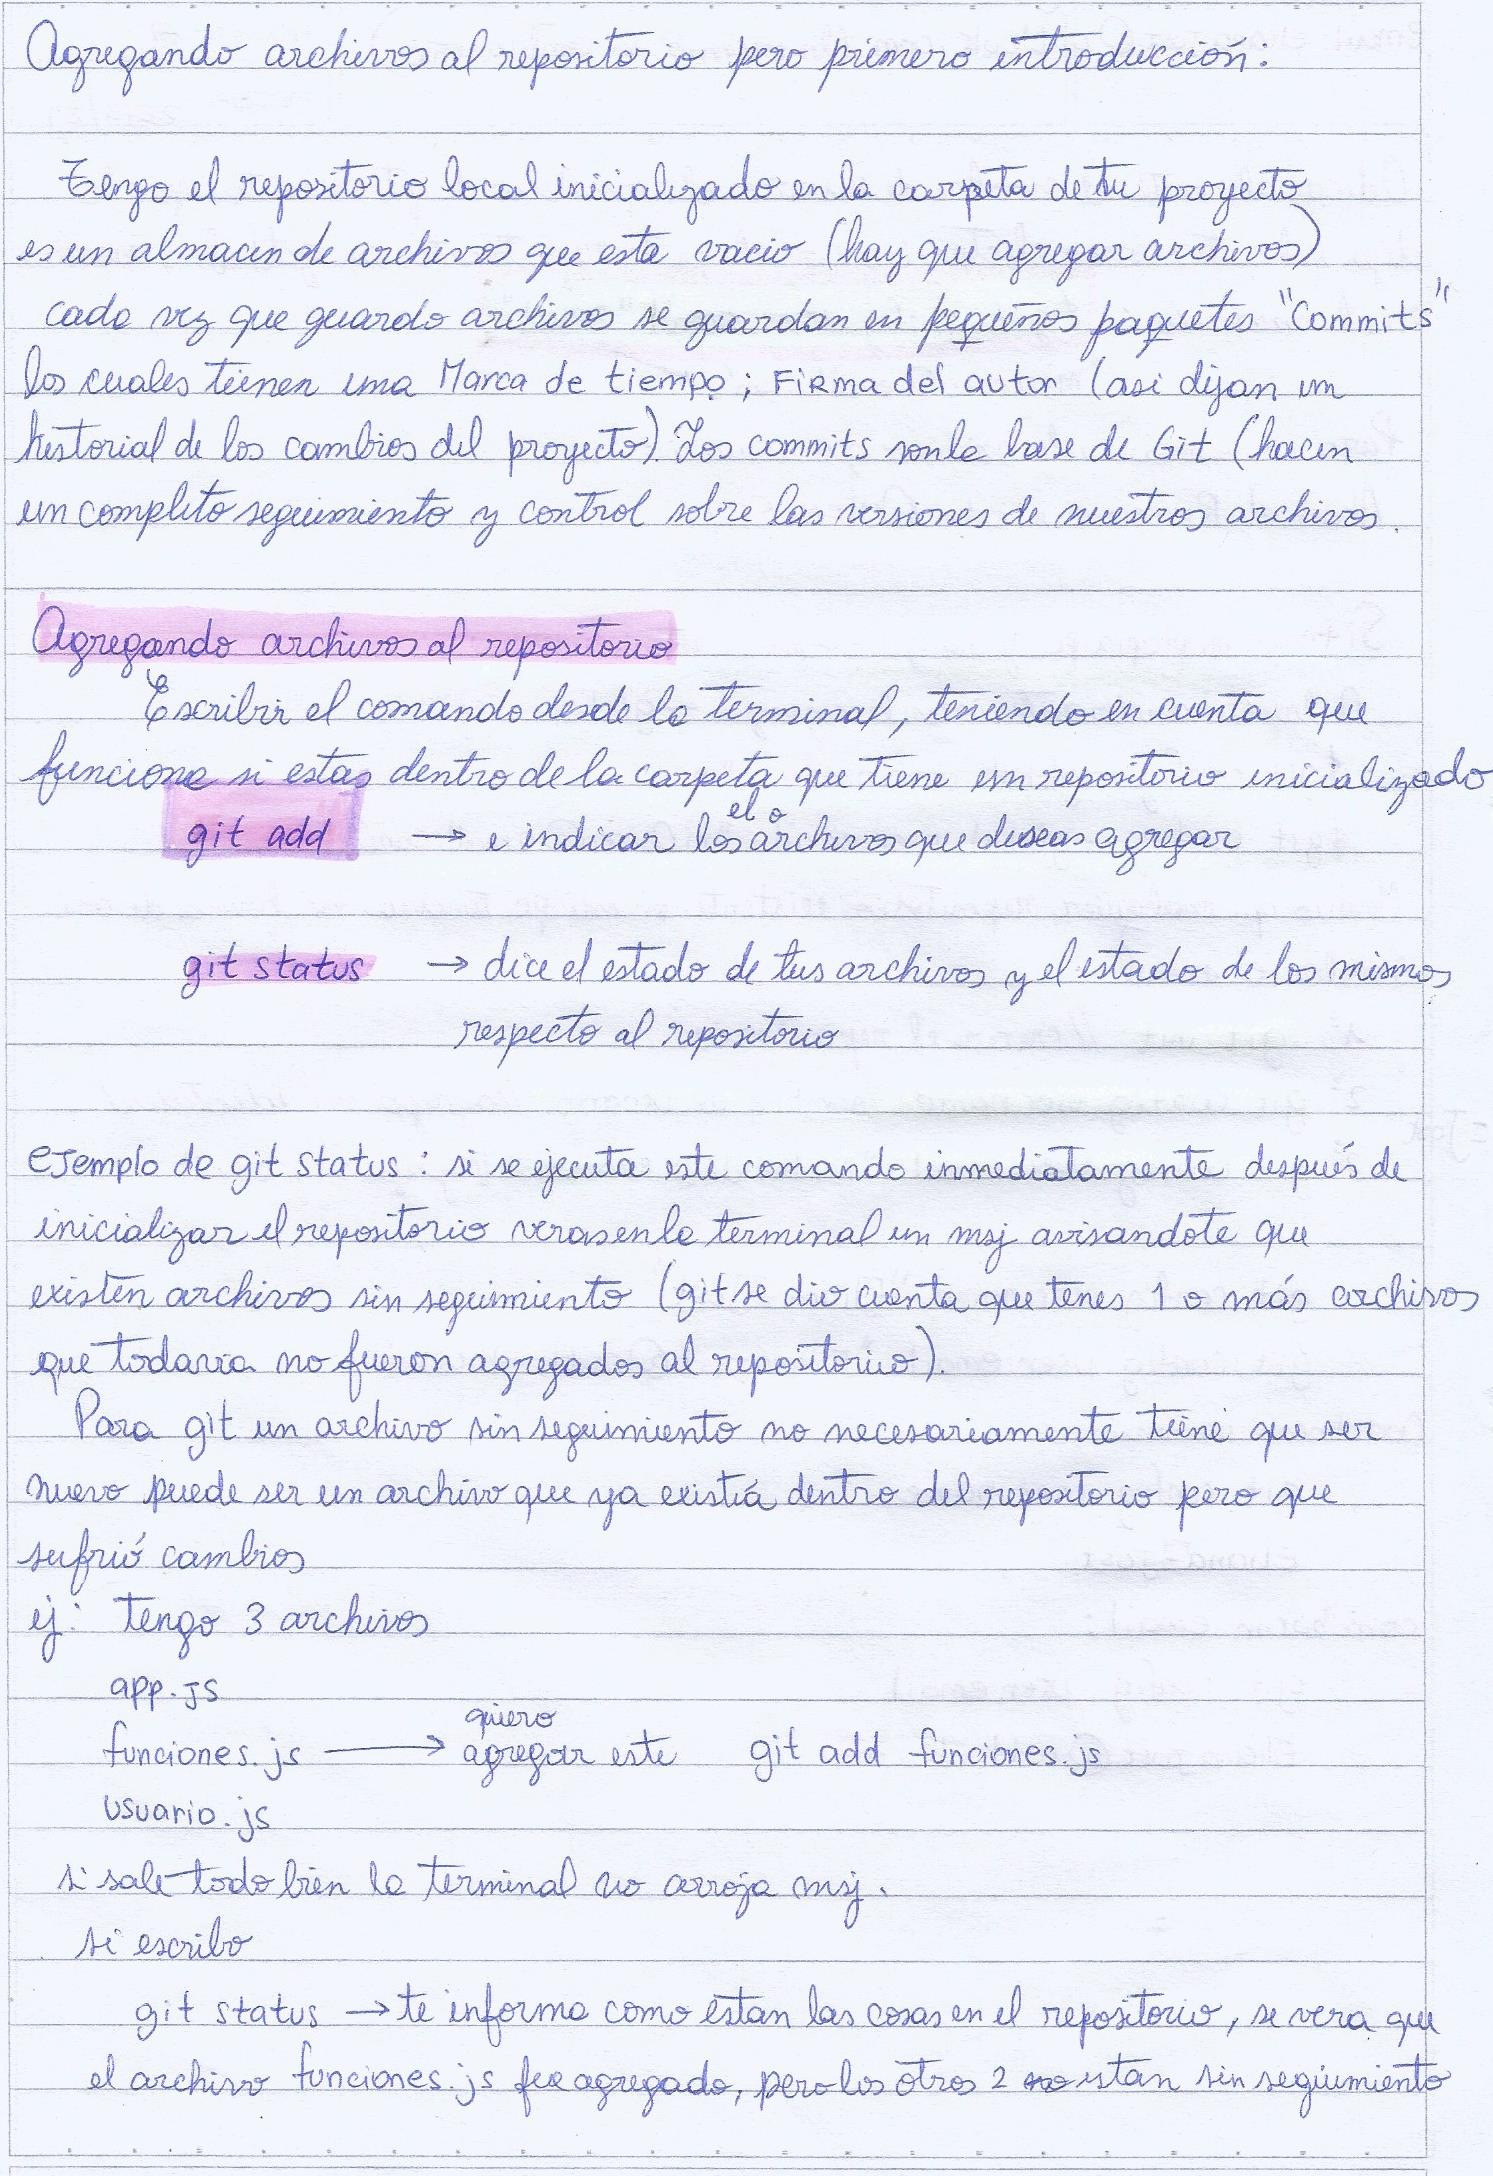 Agregando archivos al repositorio pero primero introducción:
Tengo el repositorio local inicializado en la carpeta de tu proyecto
es un almacen de archivos que esta vacio (hay que agregar archivos)
cada vez que guardo archivos se guardan en pequeños paquetes "Commits"
los cuales tienen una Marca de tiempo; Firma del autor (asi dejan un
historial de los cambios del proyecto). Los commits son la base de Git (hacen
un completo seguimiento y control sobre las versiones de nuestros archivos.
Agregando archivos al repositorio
Escribir el comando desde la terminal, teniendo en cuenta que
funciona si estas dentro de la carpeta que tiene un repositorio inicializado
git add → e indicar el o los archivos que deseas agregar
git status → dice el estado de tus archivos y el estado de los mismos
respecto al repositorio
ejemplo de git status: si se ejecuta este comando inmediatamente después de
inicializar el repositorio veras en la terminal un msj avisandote que
existen archivos sin seguimiento (git se dio cuenta que tenes 1 o más archivos
que todavia no fueron agregados al repositorio).
Para git un archivo sin seguimiento no necesariamente tiene que ser
nuevo puede ser un archivo que ya existiá dentro del repositorio pero que
sufrió cambios
ej: tengo 3 archivos
app.js
funciones.js → quiero agregar este git add funciones.js
usuario.js
si sale todo bien la terminal no arroja msj.
si escribo
git status → te informa como estan las cosas en el repositorio, se vera que
el archivo funciones.js fue agregado, pero los otros 2 estan sin seguimiento